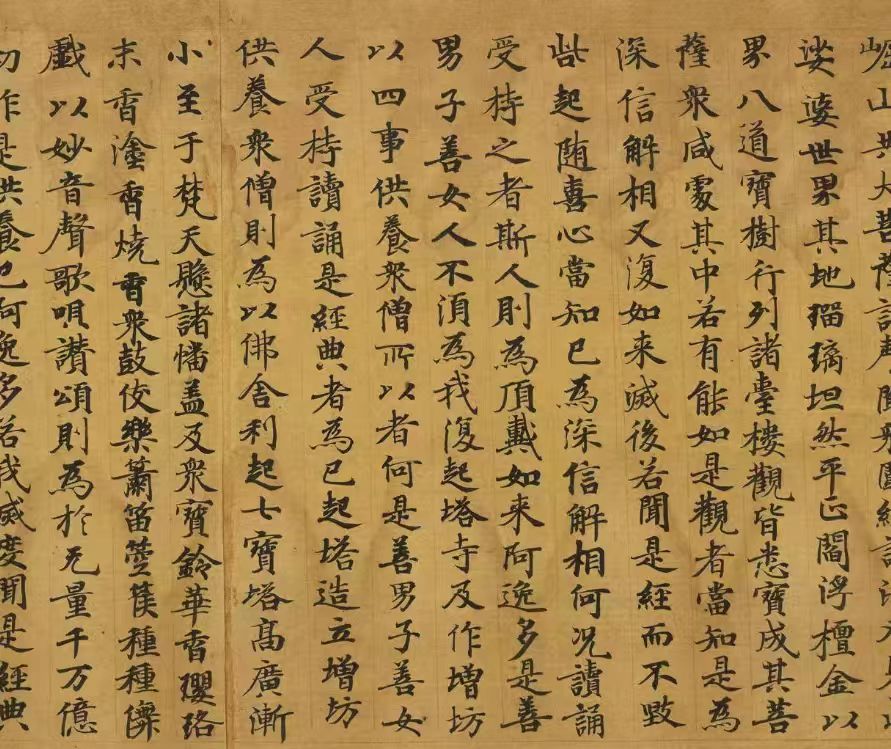 崛山共大菩薩諸聲聞衆圍繞說法
娑婆世界其地瑠璃坦然平正閻浮檀金以
界八道寶樹行列諸臺樓觀皆悉寶成其菩
薩衆咸處其中若有能如是觀者當知是為
深信解相又復如来滅後若聞是經而不毀
呰起随喜心當知已為深信解相何況讀誦
受持之者斯人則為頂戴如来阿逸多是善
男子善女人不須為我復起塔寺及作增坊
以四事供養衆僧所以者何是善男子善女
人受持讀誦是經典者為已起塔造立增坊
供養衆僧則為以佛舍利起七寶塔高廣漸
小至于梵天懸諸幡盖及衆寶鈴華香瓔珞
末香塗香燒香衆鼓伎樂簫笛箜篌種種儛
戲以妙音聲歌唄讃頌則為於无量千万億
劫作是供養已阿逸多若我滅度聞是經典